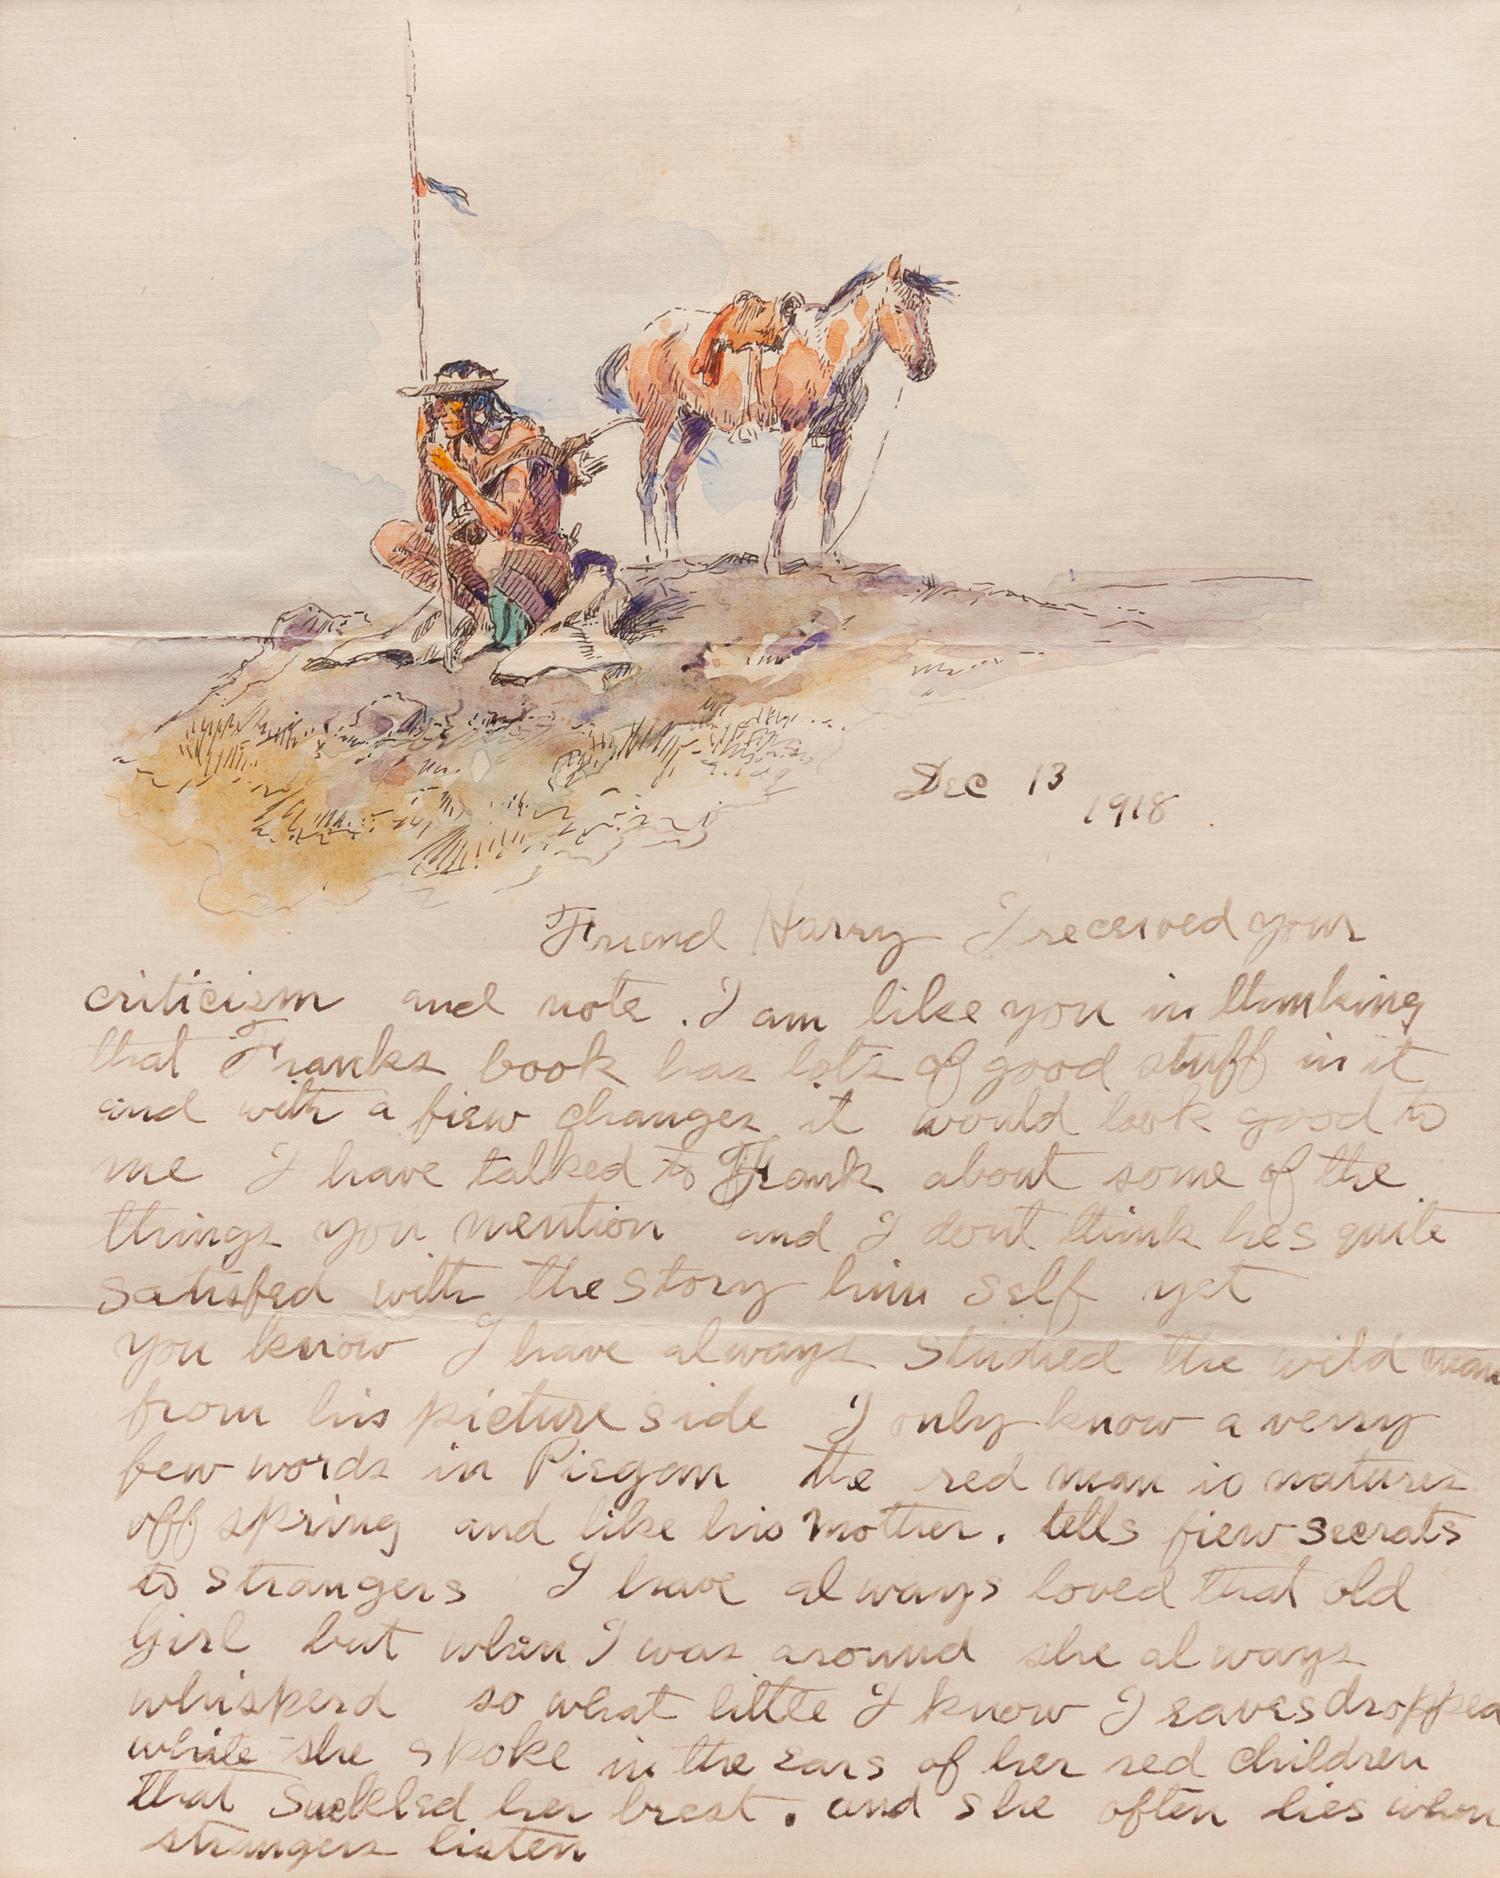 Dec 13
1918
Friend Harry I received your
criticism and note . I am like you in thinking
that Franks book has lots of good stuff in it
and with a fiew changes it would look good to
me I have talked to Frank about some of the
things you mention and I dont think hes quite
satisfed with the story him self yet
you know I have always studied the wild man
from his picture side I only know a verry
few words in Piegan the red man is natures
off spring and like his mother . tells fiew secrats
to strangers I have always loved that old
Girl but when I was around she always
whisperd so what little I know I eavesdropped
while she spoke in the ears of her red children
that Suckled her brest . and she often lies when
strangers listen